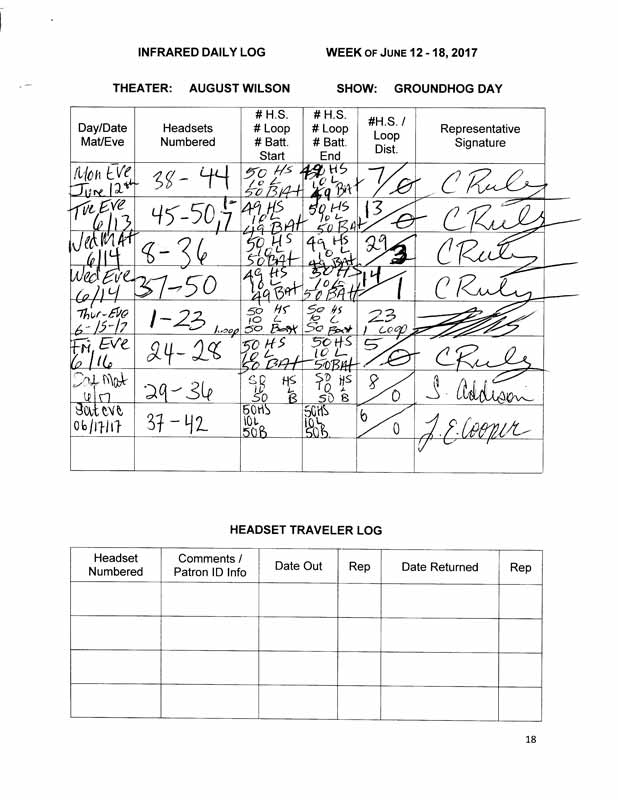 INFRARED DAILY LOG WEEK OF JUNE 12 - 18, 2017
THEATER: AUGUST WILSON SHOW: GROUNDHOG DAY
Day/Date
Mat/Eve
Headsets
Numbered
# H.S.
# Loop
# Batt.
Start
# H.S.
# Loop
# Batt.
End
#H.S. /
Loop
Dist.
Representative
Signature
Mon Eve
June 12th
38 - 44
50 HS
10 L
50 BAT
49 HS
10 L
49 BAT
7/0
C Ruly
Tue Eve
6/13
45-50, 1-7
49 HS
10 L
49 BAT
50 HS
10 L
50 BAT
13/0
C Ruly
Wed MAT
6/14
8-36
50 HS
10 L
50 BAT
49 HS
10 L
49 BAT
29/3
C Ruly
Wed Eve
6/14
37-50
49 HS
10 L
49 BAT
50 HS
10 L
50 BAT
14/1
C Ruly
Thur-Eve
6-15-17
1-23 1 Loop
50 HS
10 L
50 Batt
50 HS
10 L
50 Batt
23
1 Loop
Fri, EVE
6/16
24-28
50 HS
10 L
50 BAT
50 HS
10 L
50 BAT
5/0
C Ruly
Sat Mat
6/17
29-36
50 HS
10 L
50 B
50 HS
10 L
50 B
8/0
S. Addison
Sat eve
06/17/17
37-42
50HS
10L
50B
50HS
10L
50B
6/0
J. E. Cooper
HEADSET TRAVELER LOG
Headset
Numbered
Comments /
Patron ID Info
Date Out
Rep
Date Returned
Rep
18